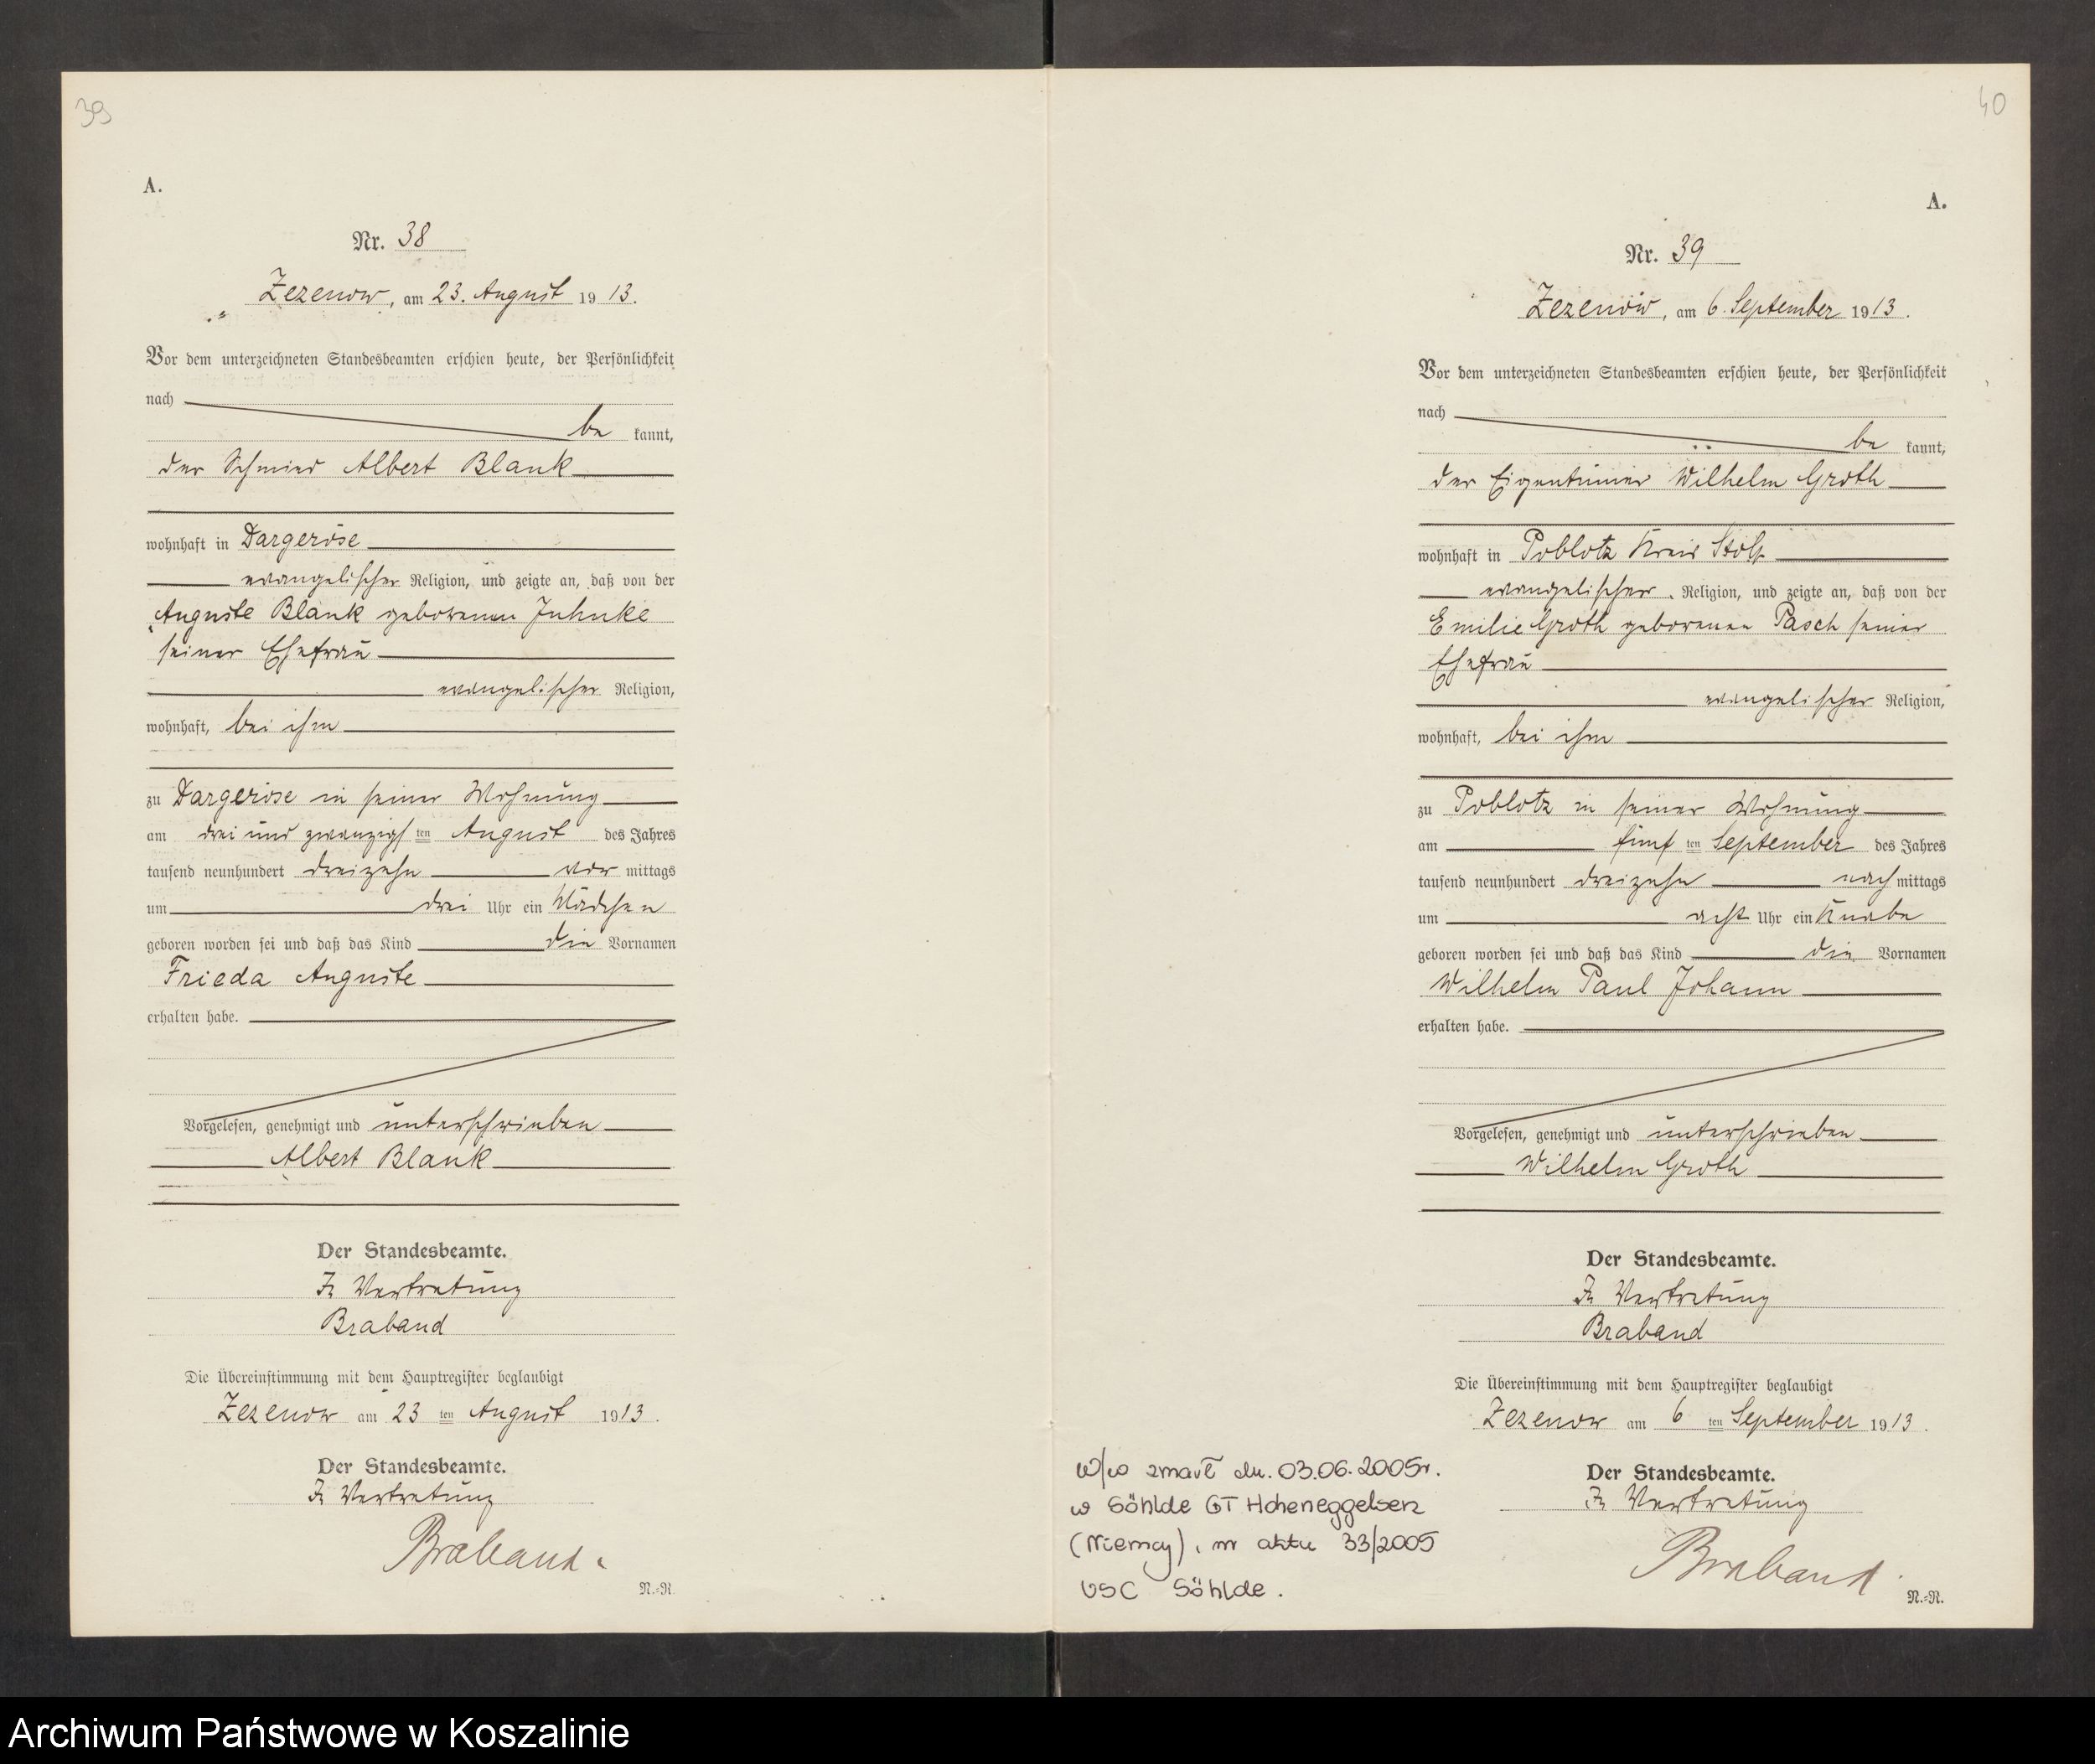 39
A.
Nr. 38
Zezenow, am 23. August 1913.
Vor dem unterzeichneten Standesbeamten erschien heute, der Persönlichkeit
nach
be kannt,
der Schmied Albert Blank
wohnhaft in Dargeröse
evangelischer Religion, und zeigte an, daß von der
Auguste Blank geborenen Juhnke
seiner Ehefrau
evangelischer Religion,
wohnhaft, bei ihm
zu Dargeröse in seiner Wohnung
am drei und zwanzigsten August des Jahres
tausend neunhundert dreizehn vor mittags
um drei Uhr ein Mädchen
geboren worden sei und daß das Kind die Vornamen
Frieda Auguste
erhalten habe.
Vorgelesen, genehmigt und unterschrieben
Albert Blank
Der Standesbeamte.
In Vertretung
Braband
Die Übereinstimmung mit dem Hauptregister beglaubigt
Zezenow am 23 ten August 1913.
Der Standesbeamte.
In Vertretung
Braband.
N.=R.
40
A.
Nr. 39
Zezenow, am 6. September 1913.
Vor dem unterzeichneten Standesbeamten erschien heute, der Persönlichkeit
nach
be kannt,
der Eigentümer Wilhelm Groth
wohnhaft in Poblotz Kreis Stolp
evangelischer Religion, und zeigte an, daß von der
Emilie Groth geborenen Pasch seiner
Ehefrau
evangelischer Religion,
wohnhaft, bei ihm
zu Poblotz in seiner Wohnung
am fünf ten September des Jahres
tausend neunhundert dreizehn nach mittags
um acht Uhr ein Knabe
geboren worden sei und daß das Kind die Vornamen
Wilhelm Paul Johann
erhalten habe.
Vorgelesen, genehmigt und unterschrieben
Wilhelm Groth
Der Standesbeamte.
In Vertretung
Braband
Die Übereinstimmung mit dem Hauptregister beglaubigt
Zezenow am 6 ten September 1913.
Der Standesbeamte.
In Vertretung
Braband
N.=R.
w/w zmarł dn. 03.06.2005r.
w Söhlde OT Hoheneggelsen
(Niemcy), nr aktu 33/2005
USC Söhlde.
Archiwum Państwowe w Koszalinie